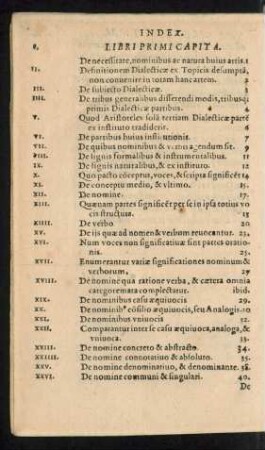 INDEX.
LIBRI PRIMI CAPITA.
I. De necessitate, nominibus ac natura huius artis. 1
II. Definitionem Dialecticæ ex Topicis desumptā,
non conuenire in totam hanc artem. 3
III. De subiecto Dialecticæ. 3
IIII. De tribus generalibus differendi modis, tribusq;
primis Dialecticæ partibus.
V. Quod Aristoteles solā tertiam Dialecticæ partē
ex instituto tradiderit. 6
VI. De partibus huius institutionis. 7
VII. De quibus nominibus & verbis agendum sit. 9
VIII. De signis formalibus & instrumentalibus. 11
IX. De signis naturalibus, & ex instituto. 12
X. Quo pacto cōceptus, voces, & scripta significēt 14
XI. De conceptu medio, & vltimo. 15.
XII. De nomine. 17.
XIII. Quænam partes significēt per se in ipsa totius vo
cis structura. 18
XIIII. De verbo 20.
XV. De iis quæ ad nomen & verbum reuocantur. 23.
XVI. Num voces non significatiuæ sint partes oratio
nis. 25
XVII. Enumerantur variæ significationes nominum &
verborum, 27
XVIII. De nomine qua ratione verba, & cætera omnia
categoremata complectatur. ibid.
XIX. De nominibus æquiuocis 29.
XX. De nominib⁹ cōsilio æquiuocis, seu Analogis. 30
XXI. De nominibus vniuocis 32.
XXII. Comparantur inter se æquiuoca, analoga, &
vniuoca. 33
XXIII. De nomine concreto & abstracto. 34.
XXIIII. De nomine connotatiuo & absoluto. 35.
XXV. De nomine denominatiuo, & denominante. 38.
XXVI. De nomine communi & singulari. 40.
De